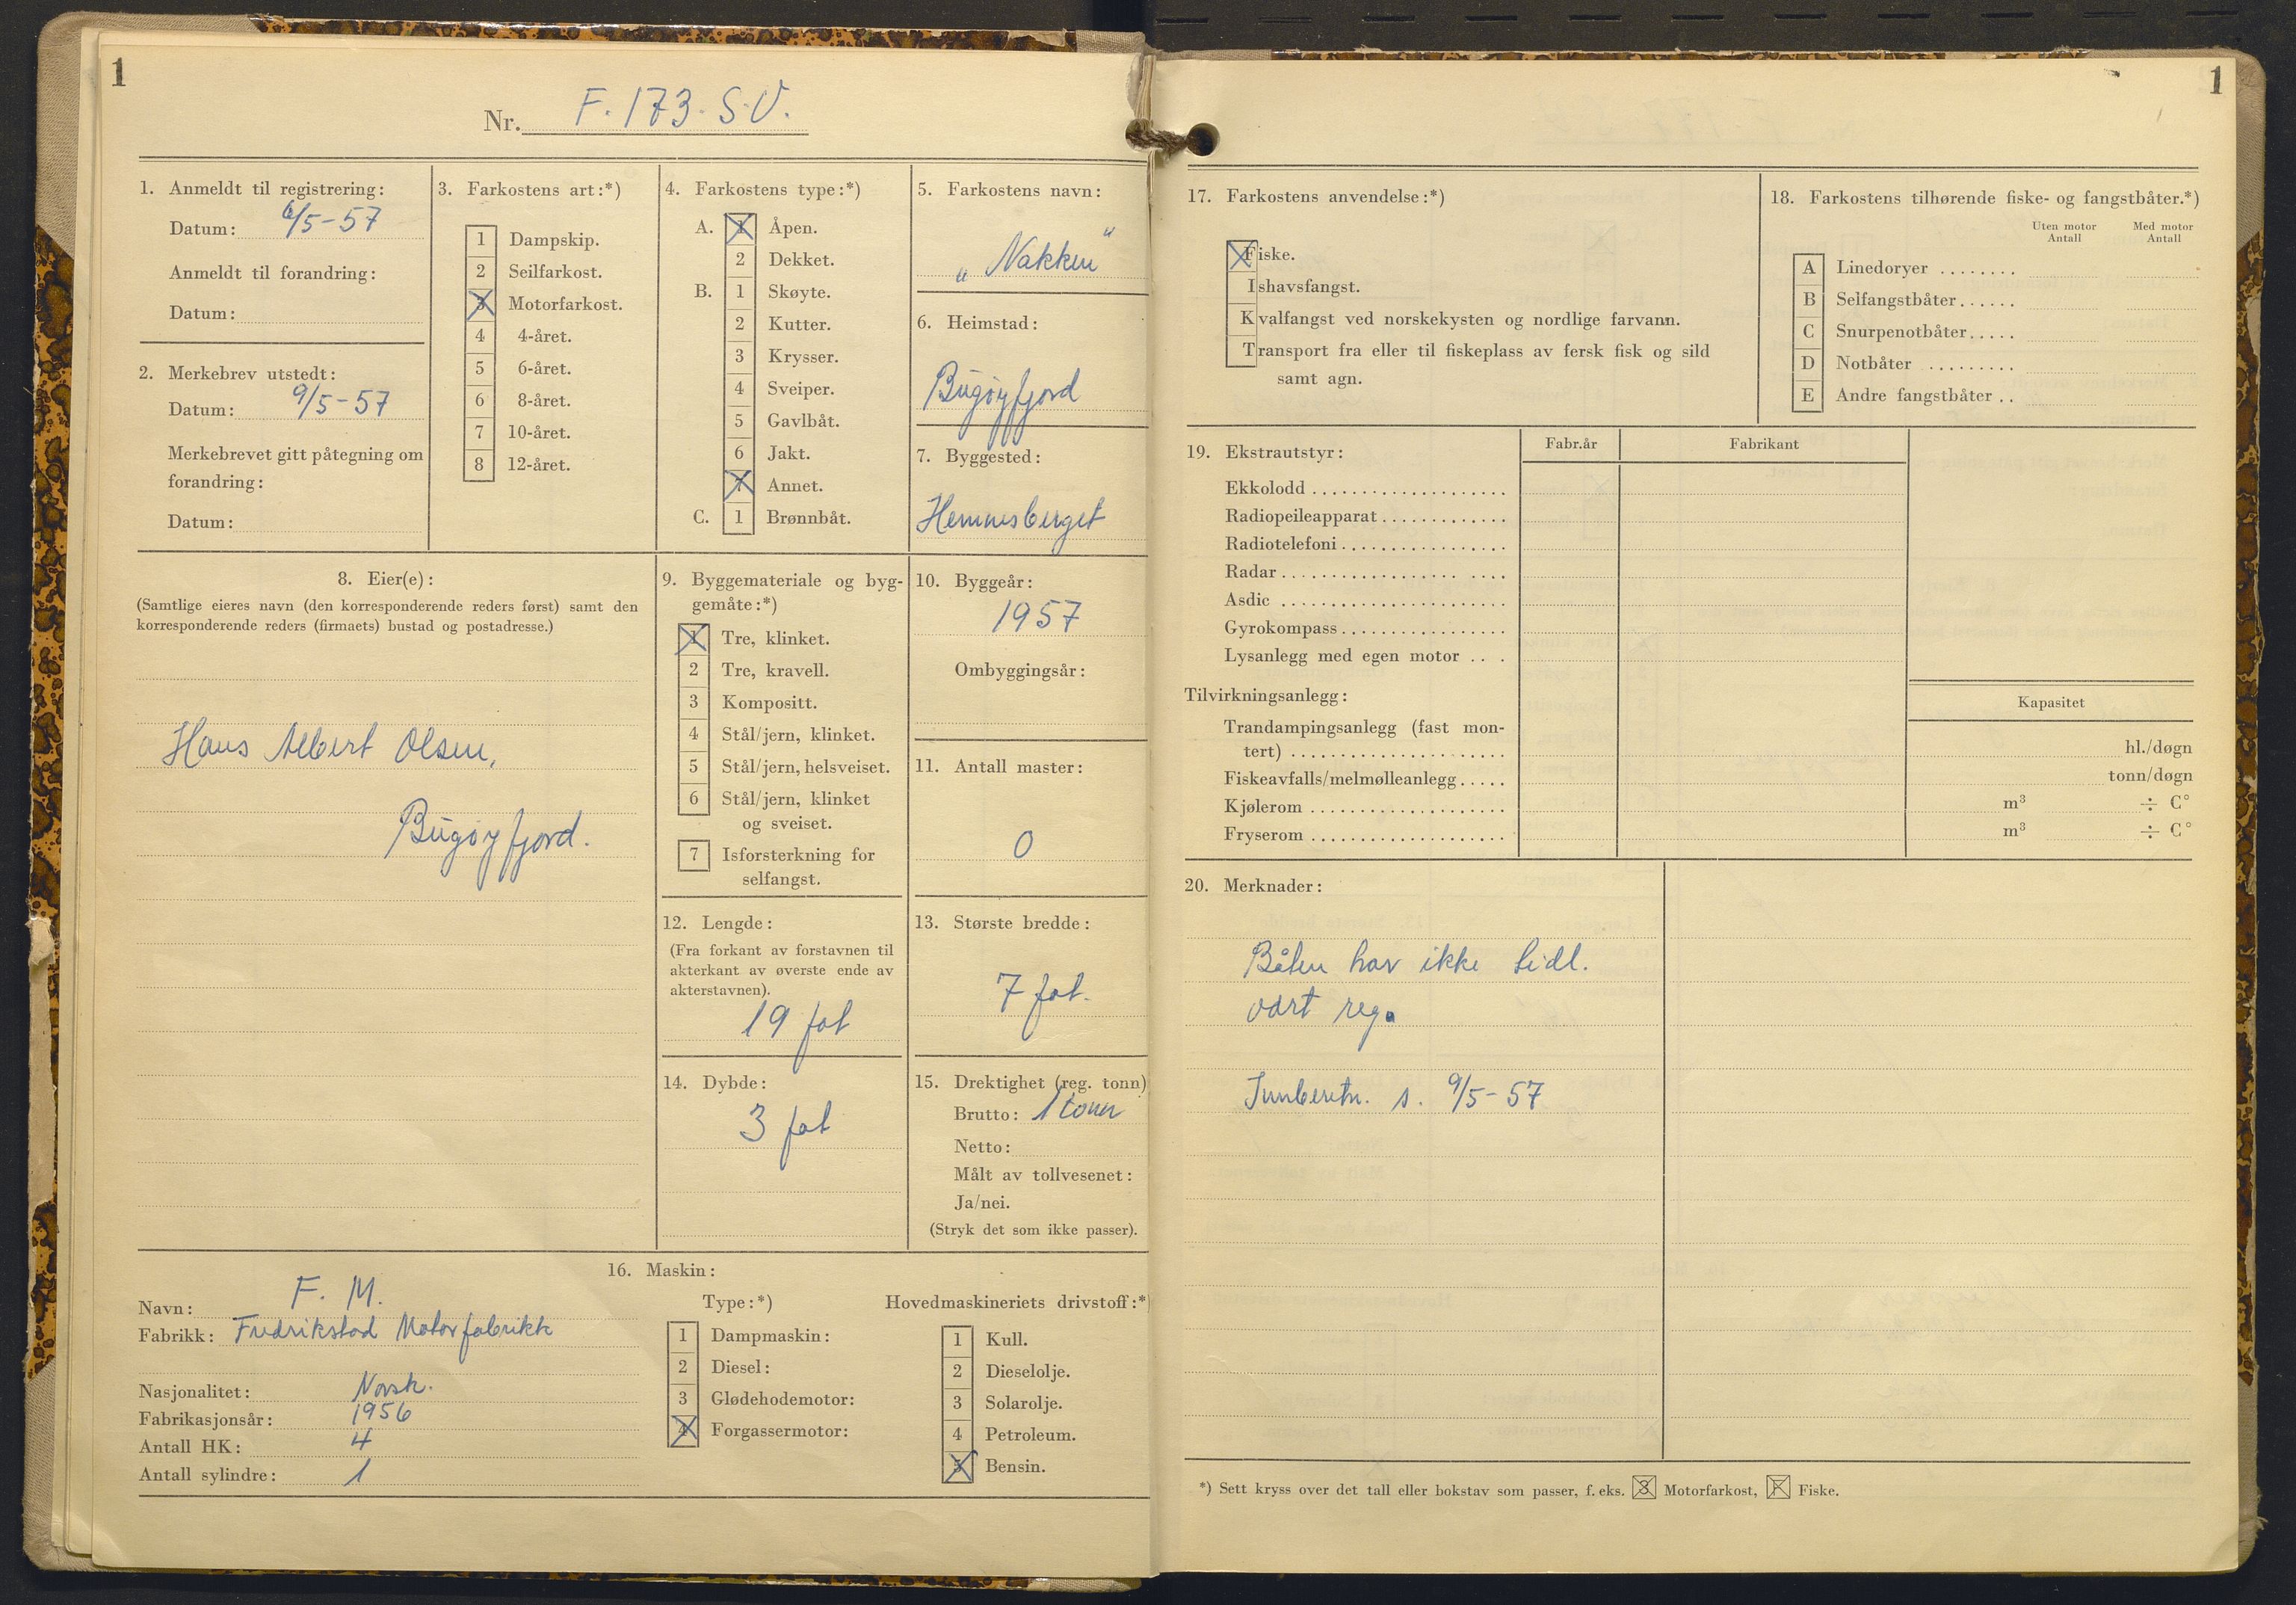 1
Nr. F. 173. S.V.
1. Anmeldt til registrering:
Datum: 6/5-57
Anmeldt til forandring:
Datum:
2. Merkebrev utstedt:
Datum: 9/5-57
Merkebrevet gitt påtegning om
forandring:
Datum:
3. Farkostens art:*)
1 Dampskip.
2 Seilfarkost.
3 Motorfarkost.
4 4-året.
5 6-året.
6 8-året.
7 10-året.
8 12-året.
4. Farkostens type:*)
A. 1 Åpen.
2 Dekket.
B. 1 Skøyte.
2 Kutter.
3 Krysser.
4 Sveiper.
5 Gavlbåt.
6 Jakt.
7 Annet.
C. 1 Brønnbåt.
5. Farkostens navn:
„Nakken“
6. Heimstad:
Bugøyfjord
7. Byggested:
Hemnesberget
8. Eier(e):
(Samtlige eieres navn (den korresponderende reders først) samt den
korresponderende reders (firmaets) bustad og postadresse.)
Hans Albert Olsen,
Bugøyfjord.
9. Byggemateriale og byg-
gemåte:*)
1 Tre, klinket.
2 Tre, kravell.
3 Kompositt.
4 Stål/jern, klinket.
5 Stål/jern, helsveiset.
6 Stål/jern, klinket
og sveiset.
7 Isforsterkning for
selfangst.
10. Byggeår:
1957
Ombyggingsår:
11. Antall master:
0
12. Lengde:
(Fra forkant av forstavnen til
akterkant av øverste ende av
akterstavnen).
19 fot
13. Største bredde:
7 fot.
14. Dybde:
3 fot
15. Drektighet (reg. tonn)
Brutto: 1 tonn
Netto:
Målt av tollvesenet:
Ja/nei.
(Stryk det som ikke passer).
16. Maskin:
Navn: F. M.
Fabrikk: Fredrikstad Motorfabrikk
Nasjonalitet: Norsk.
Fabrikasjonsår: 1956
Antall HK: 4
Antall sylindre: 1
Type:*)
1 Dampmaskin:
2 Diesel:
3 Glødehodemotor:
4 Forgassermotor:
Hovedmaskineriets drivstoff:*)
1 Kull.
2 Dieselolje.
3 Solarolje.
4 Petroleum.
5 Bensin.
1
17. Farkostens anvendelse:*)
Fiske.
Ishavsfangst.
Kvalfangst ved norskekysten og nordlige farvann.
Transport fra eller til fiskeplass av fersk fisk og sild
samt agn.
18. Farkostens tilhørende fiske- og fangstbåter.*)
Uten motor Med motor
Antall Antall
A Linedoryer ........
B Selfangstbåter......
C Snurpenotbåter.....
D Notbåter .........
E Andre fangstbåter ..
19. Ekstrautstyr: Fabr.år Fabrikant
Ekkolodd ....................
Radiopeileapparat.............
Radiotelefoni.................
Radar.................. ....
Asdic .......................
Gyrokompass.................
Lysanlegg med egen motor .. .
Tilvirkningsanlegg: Kapasitet
Trandampingsanlegg (fast mon-
tert) ...................... hl./døgn
Fiskeavfalls/melmølleanlegg..... tonn/døgn
Kjølerom .................... m³ ÷ C°
Fryserom .................... m³ ÷ C°
20. Merknader:
Båten har ikke tidl.
vært reg.
Innberetn. s. 9/5-57
*) Sett kryss over det tall eller bokstav som passer, f. eks. 3 Motorfarkost, F Fiske.